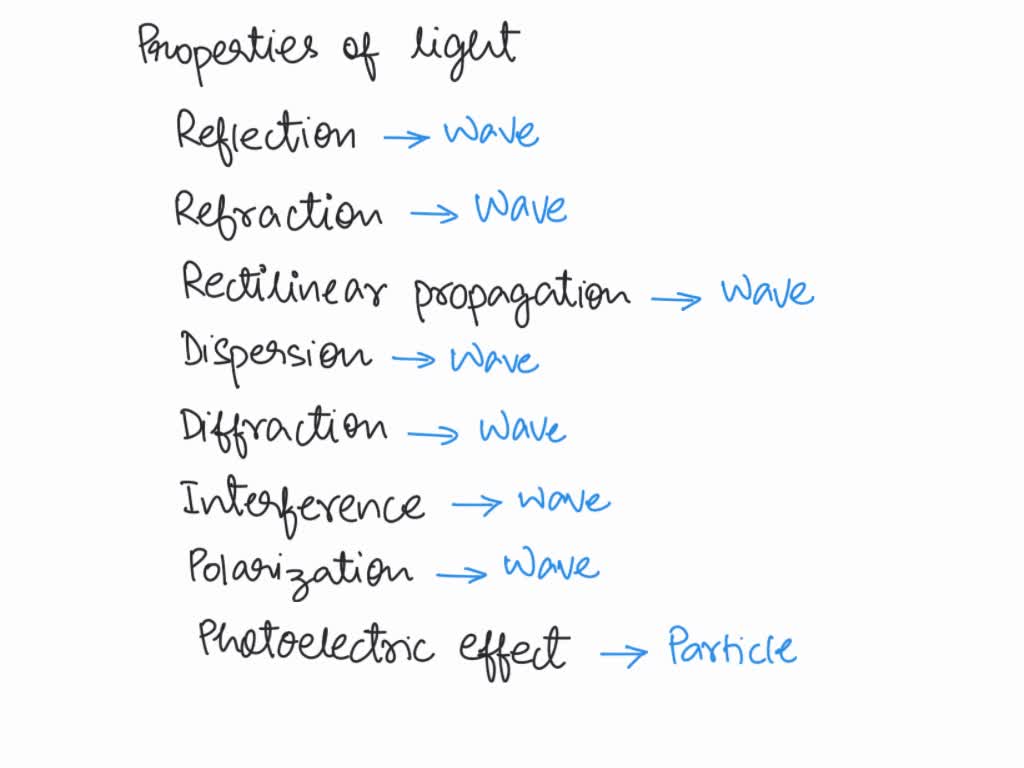 Properties of light
Reflection → Wave
Refraction → Wave
Rectilinear propagation → Wave
Dispersion → Wave
Diffraction → Wave
Interference → Wave
Polarization → Wave
Photoelectric effect → Particle